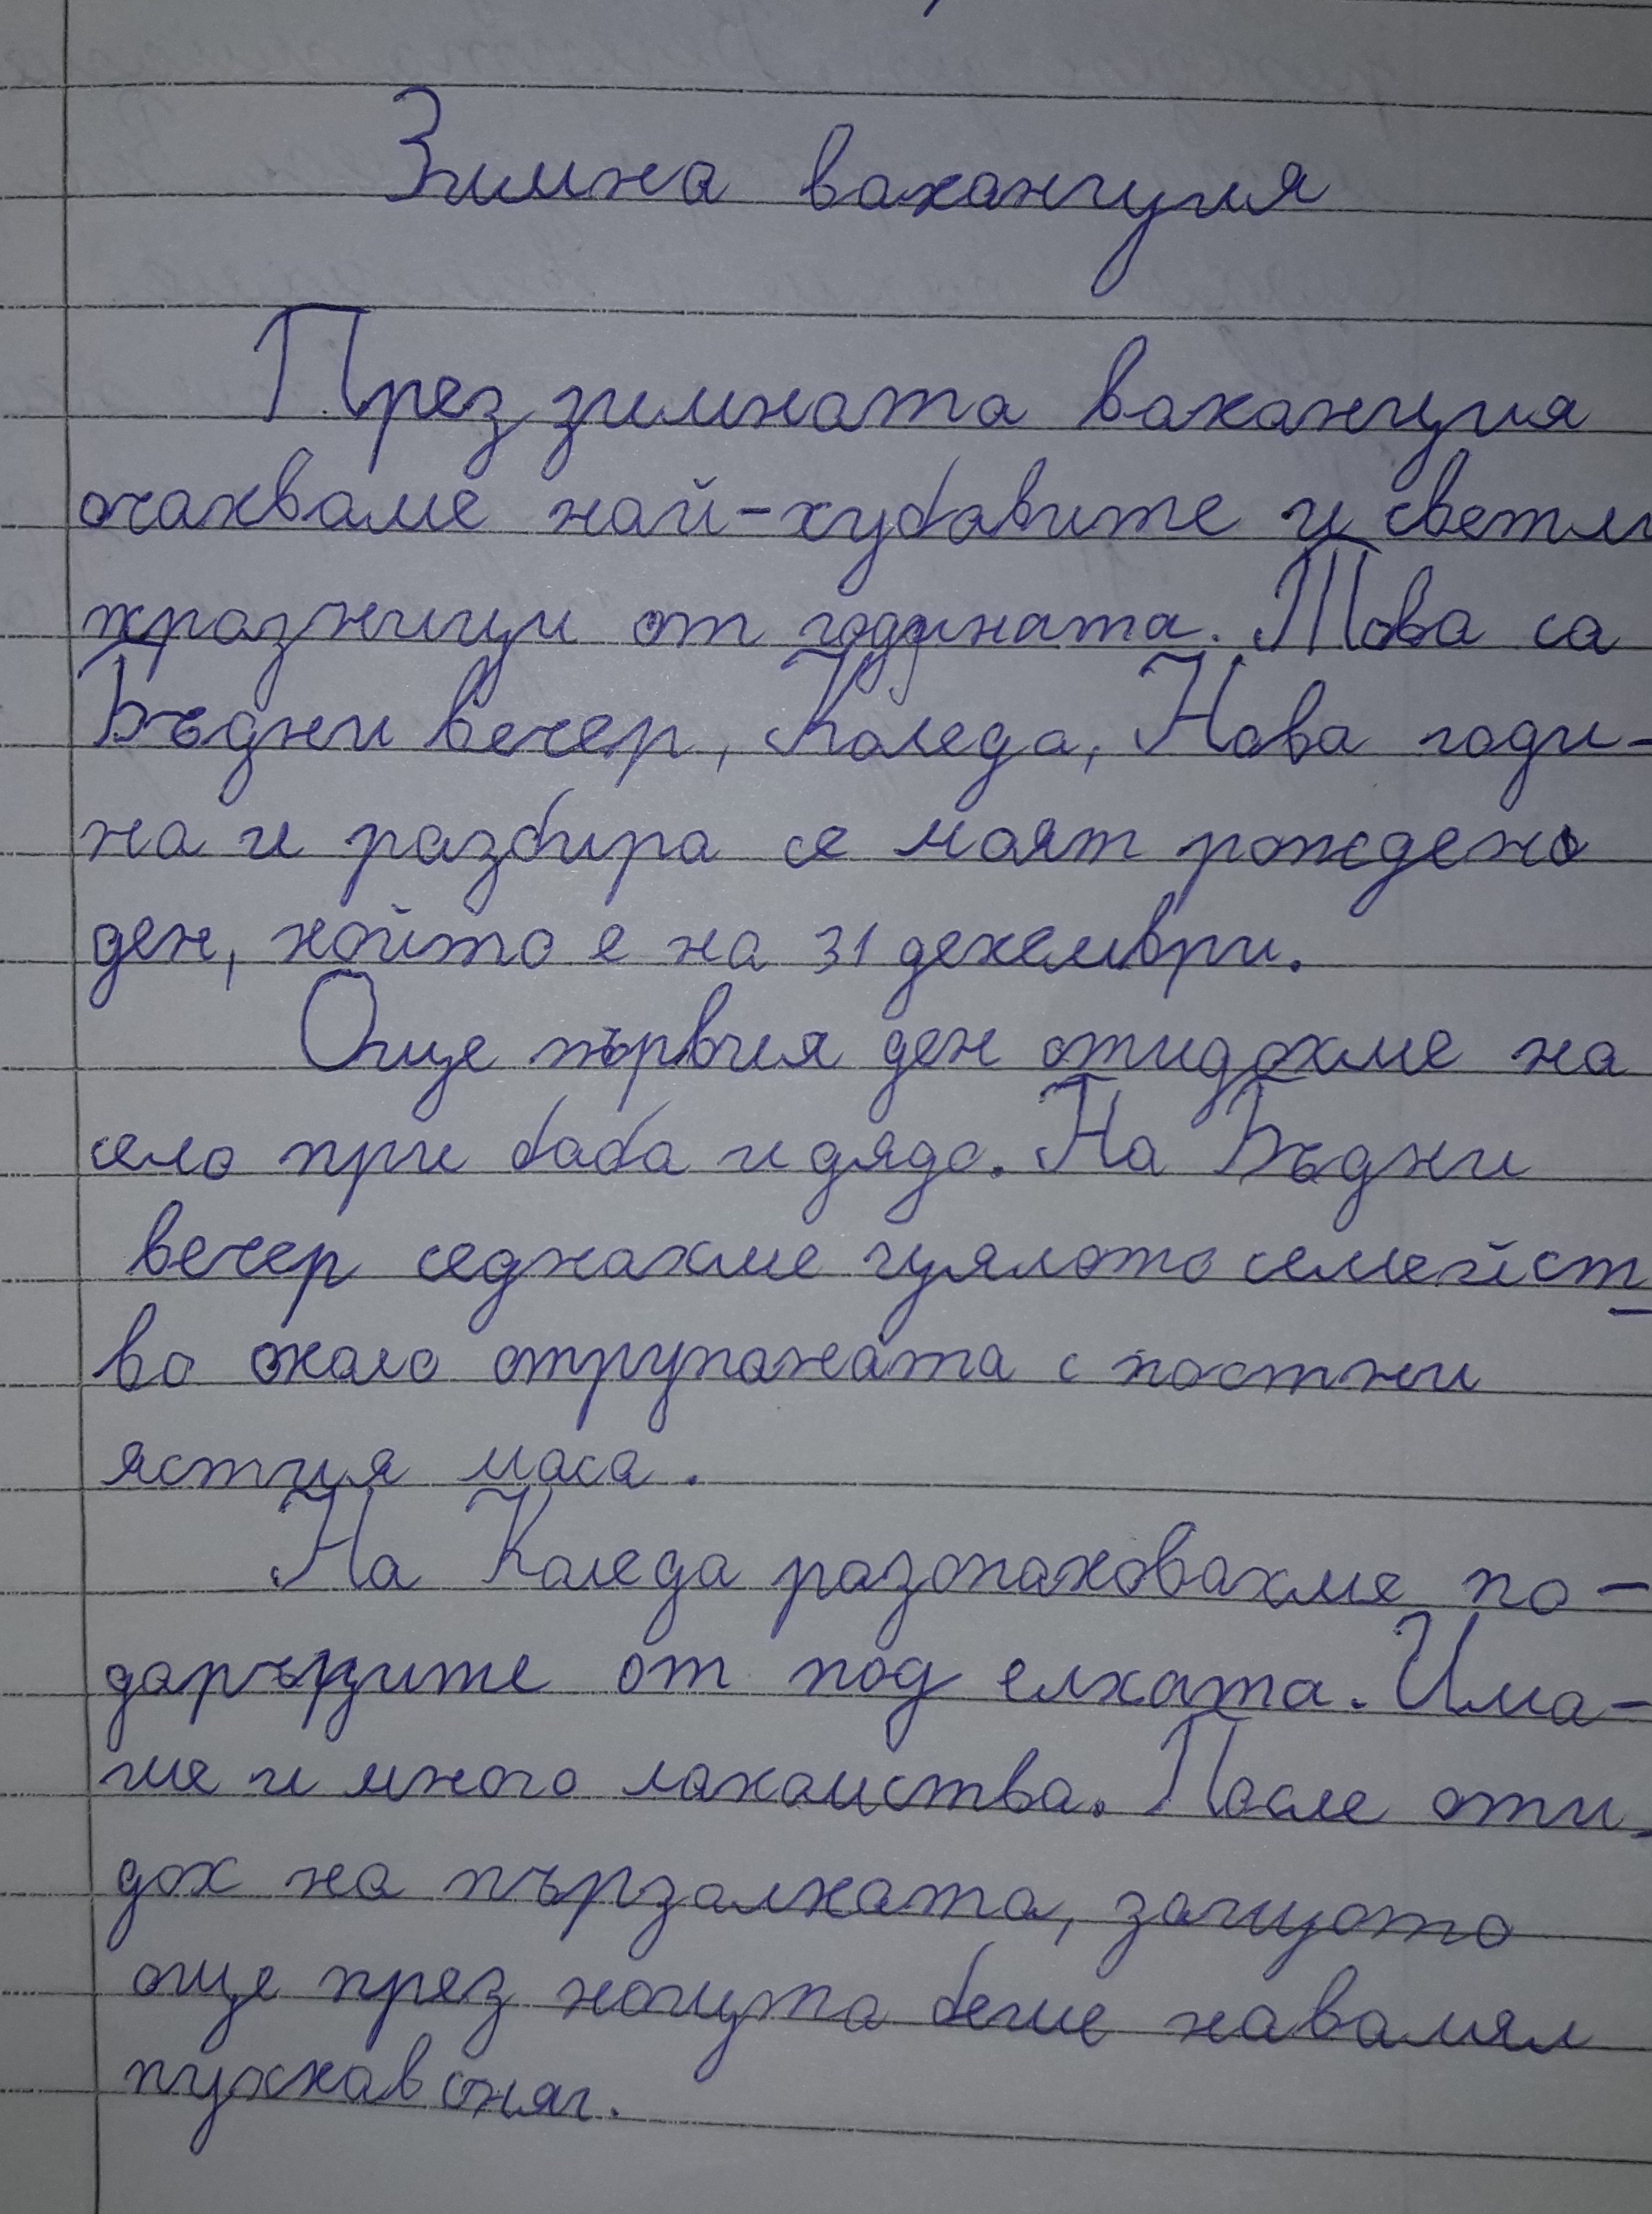 Зимна ваканция
През зимната ваканция
очакваме най-хубавите и светли
празници от годината. Това са
Бъдни вечер, Коледа, Нова годи-
на и разбира се моят рожден
ден, който е на 31 декември.
Още първия ден отидохме на
село при баба и дядо. На Бъдни
вечер седнахме цялото семейст-
во около отрупаната с постни
ястия маса.
На Коледа разопаковахме по-
даръците от под елхата. Има-
ше и много лакомства. После оти-
дох на пързалката, защото
още през нощта беше навалял
пухкав сняг.